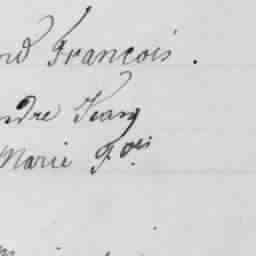 nd François.
ndre Jean
Marie F.ois